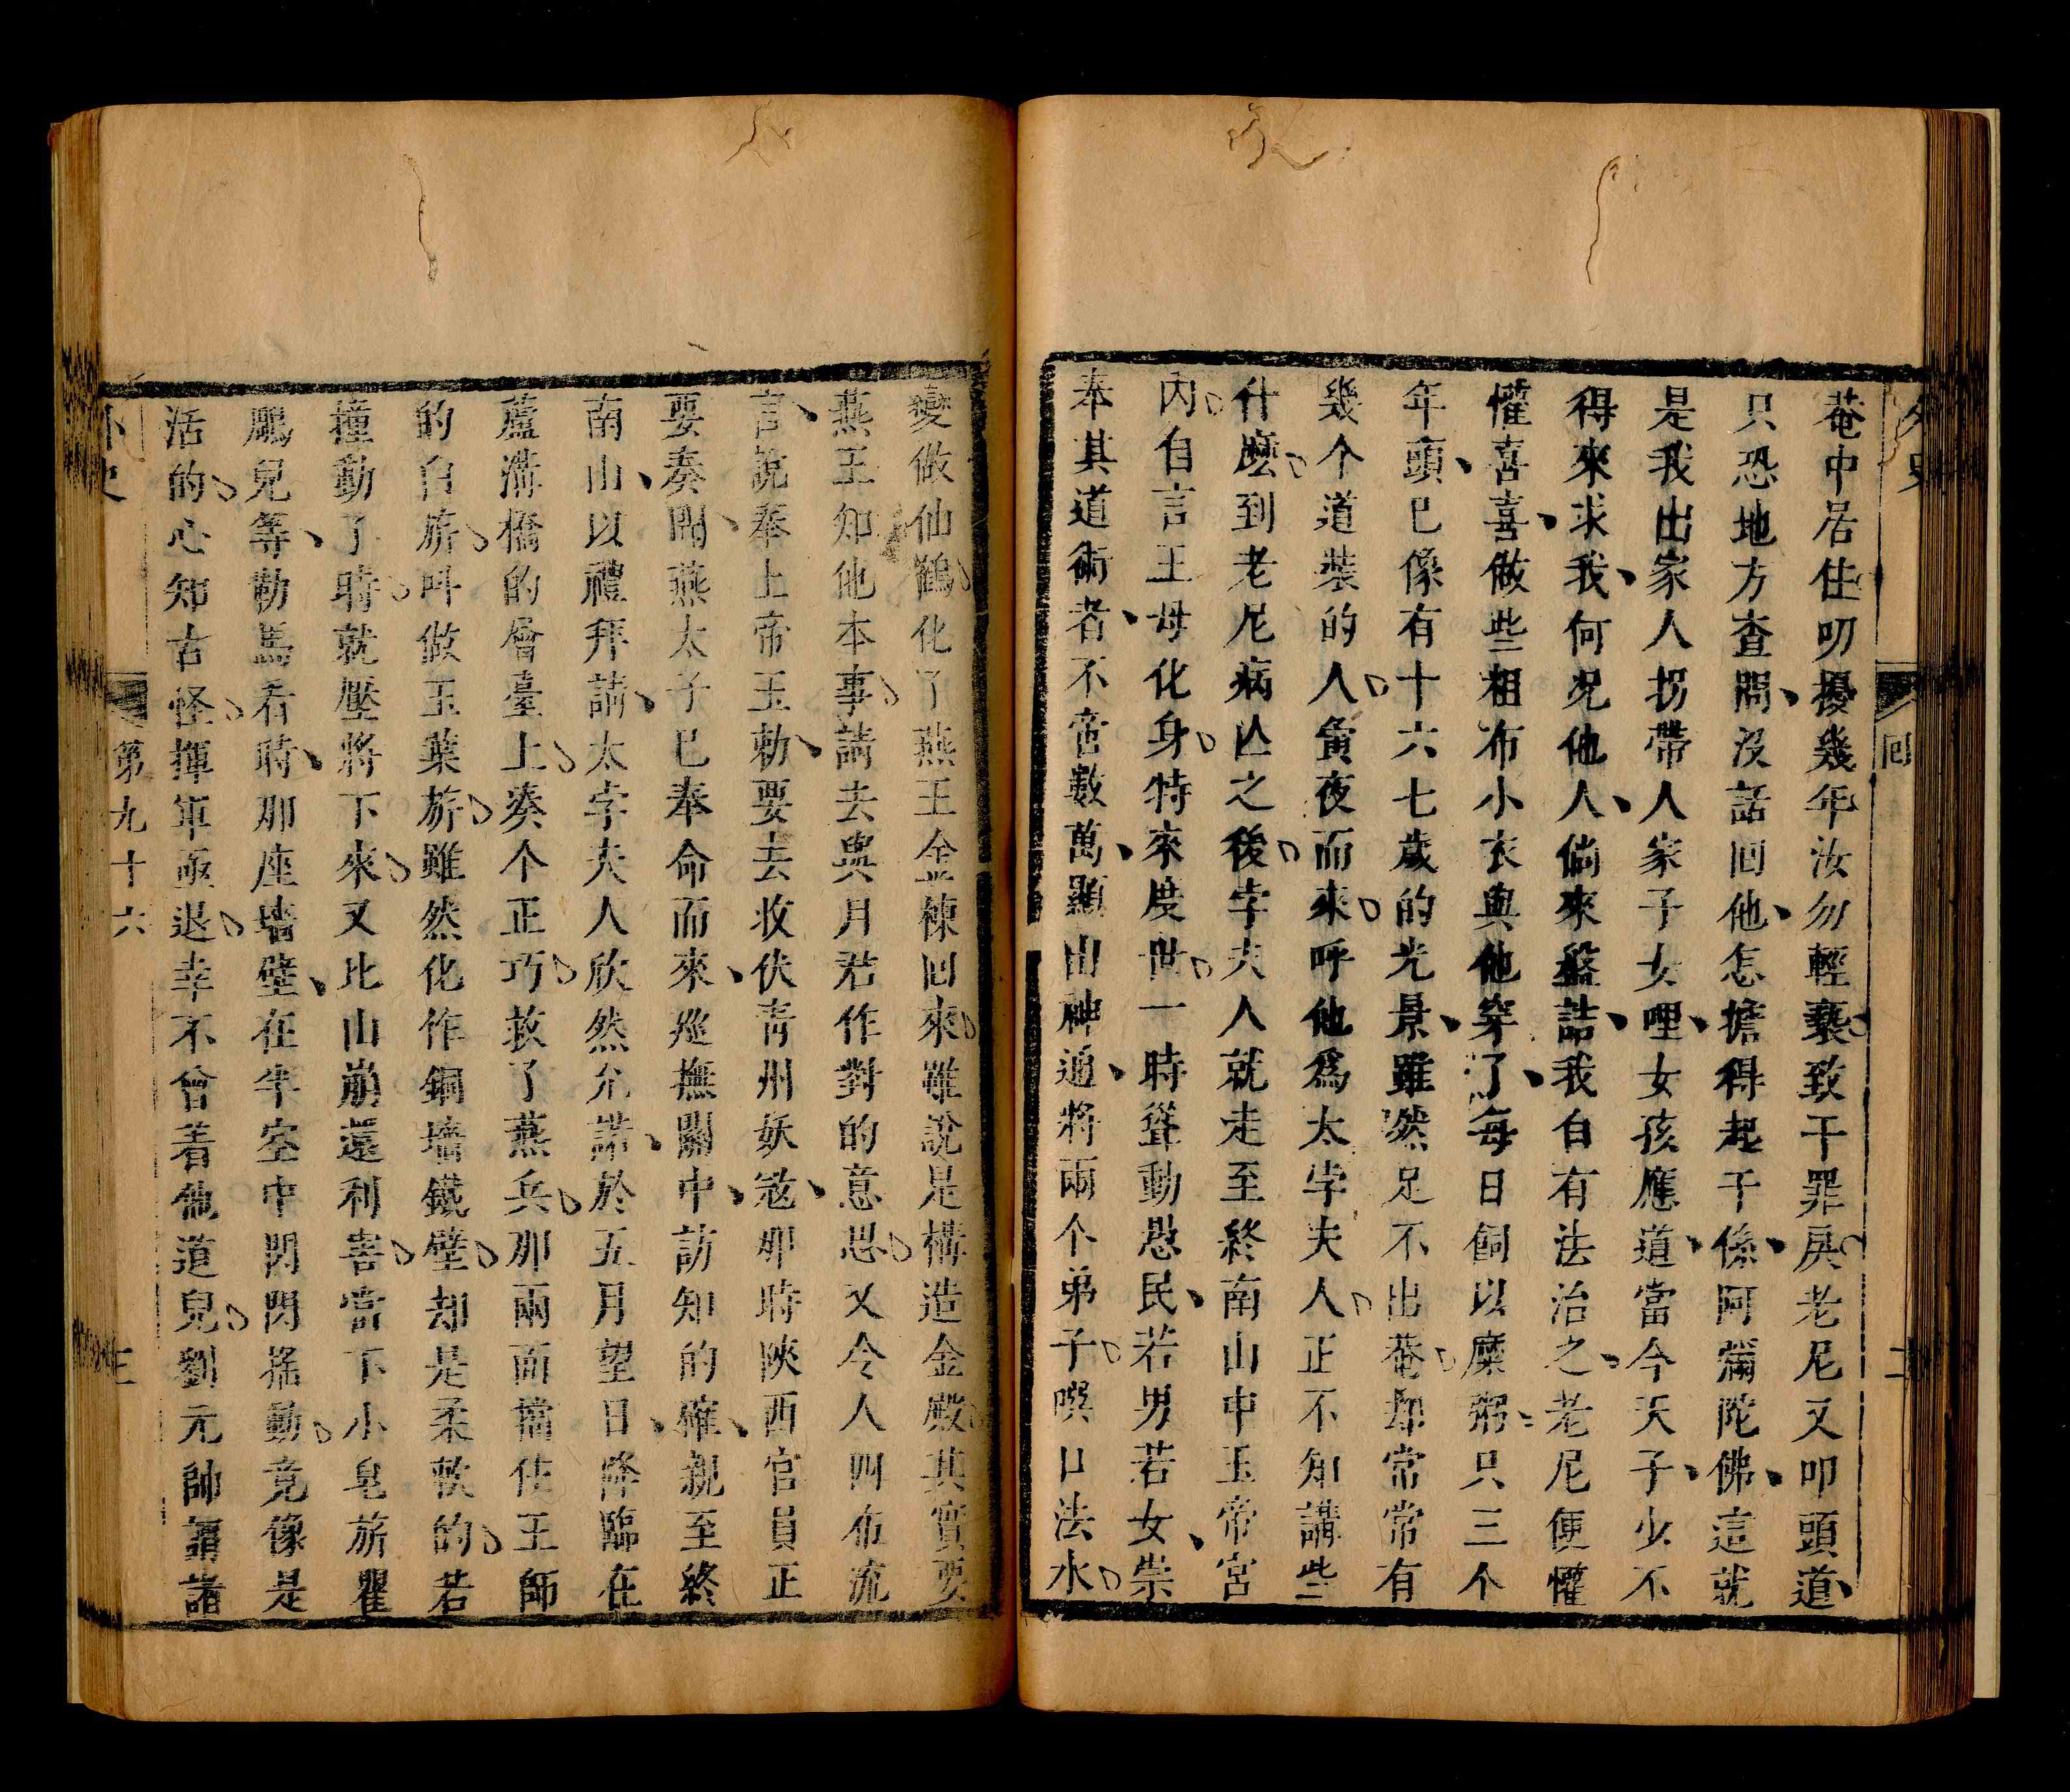 外史
回
二
菴中居住叨擾幾年汝勿輕褻致干罪戾老尼又叩頭道
只恐地方査問沒話回他怎擔得起干係阿彌陀佛這就
是我出家人拐帶人家子女哩女孩應道當今天子少不
得來求我何况他人倘來盤詰我自有法治之老尼便懽
懽喜喜做些粗布小衣與他穿了每日飼以糜粥只三个
年頭已像有十六七歲的光景雖然足不出菴却常常有
幾个道裝的人黃夜而來呼他爲太孛夫人正不知講些
什麽到老尼病亾之後孛夫人就走至終南山中玉帝宮
內自言王母化身特來度世一時聳動愚民若男若女崇
奉其道術者不啻數萬顯出神通將兩个弟子噀口法水
變做仙鶴化了燕王金棟回來雖說是構造金殿其實要
燕王知他本事請去與月君作對的意思又令人四布流
言說奉上帝玉勅要去收伏靑州妖寇那時陝西官員正
要奏聞燕太子已奉命而來廵撫關中訪知的確親至終
南山以禮拜請太孛夫人欣然允諾於五月望日降臨在
蘆溝橋的層臺上凑个正巧救了燕兵那兩面擋住王師
的白旂呌做玉葉旂雖然化作銅墻鐵壁却是柔軟的若
撞動了時就壓將下來又比山崩還利害當下小皂旂瞿
鵰兒等勒馬看時那座墻壁在半空中閃閃搖動竟像是
活的心知古怪揮軍亟退幸不曾着他道兒劉元帥謂諸
外史
第九十六
三